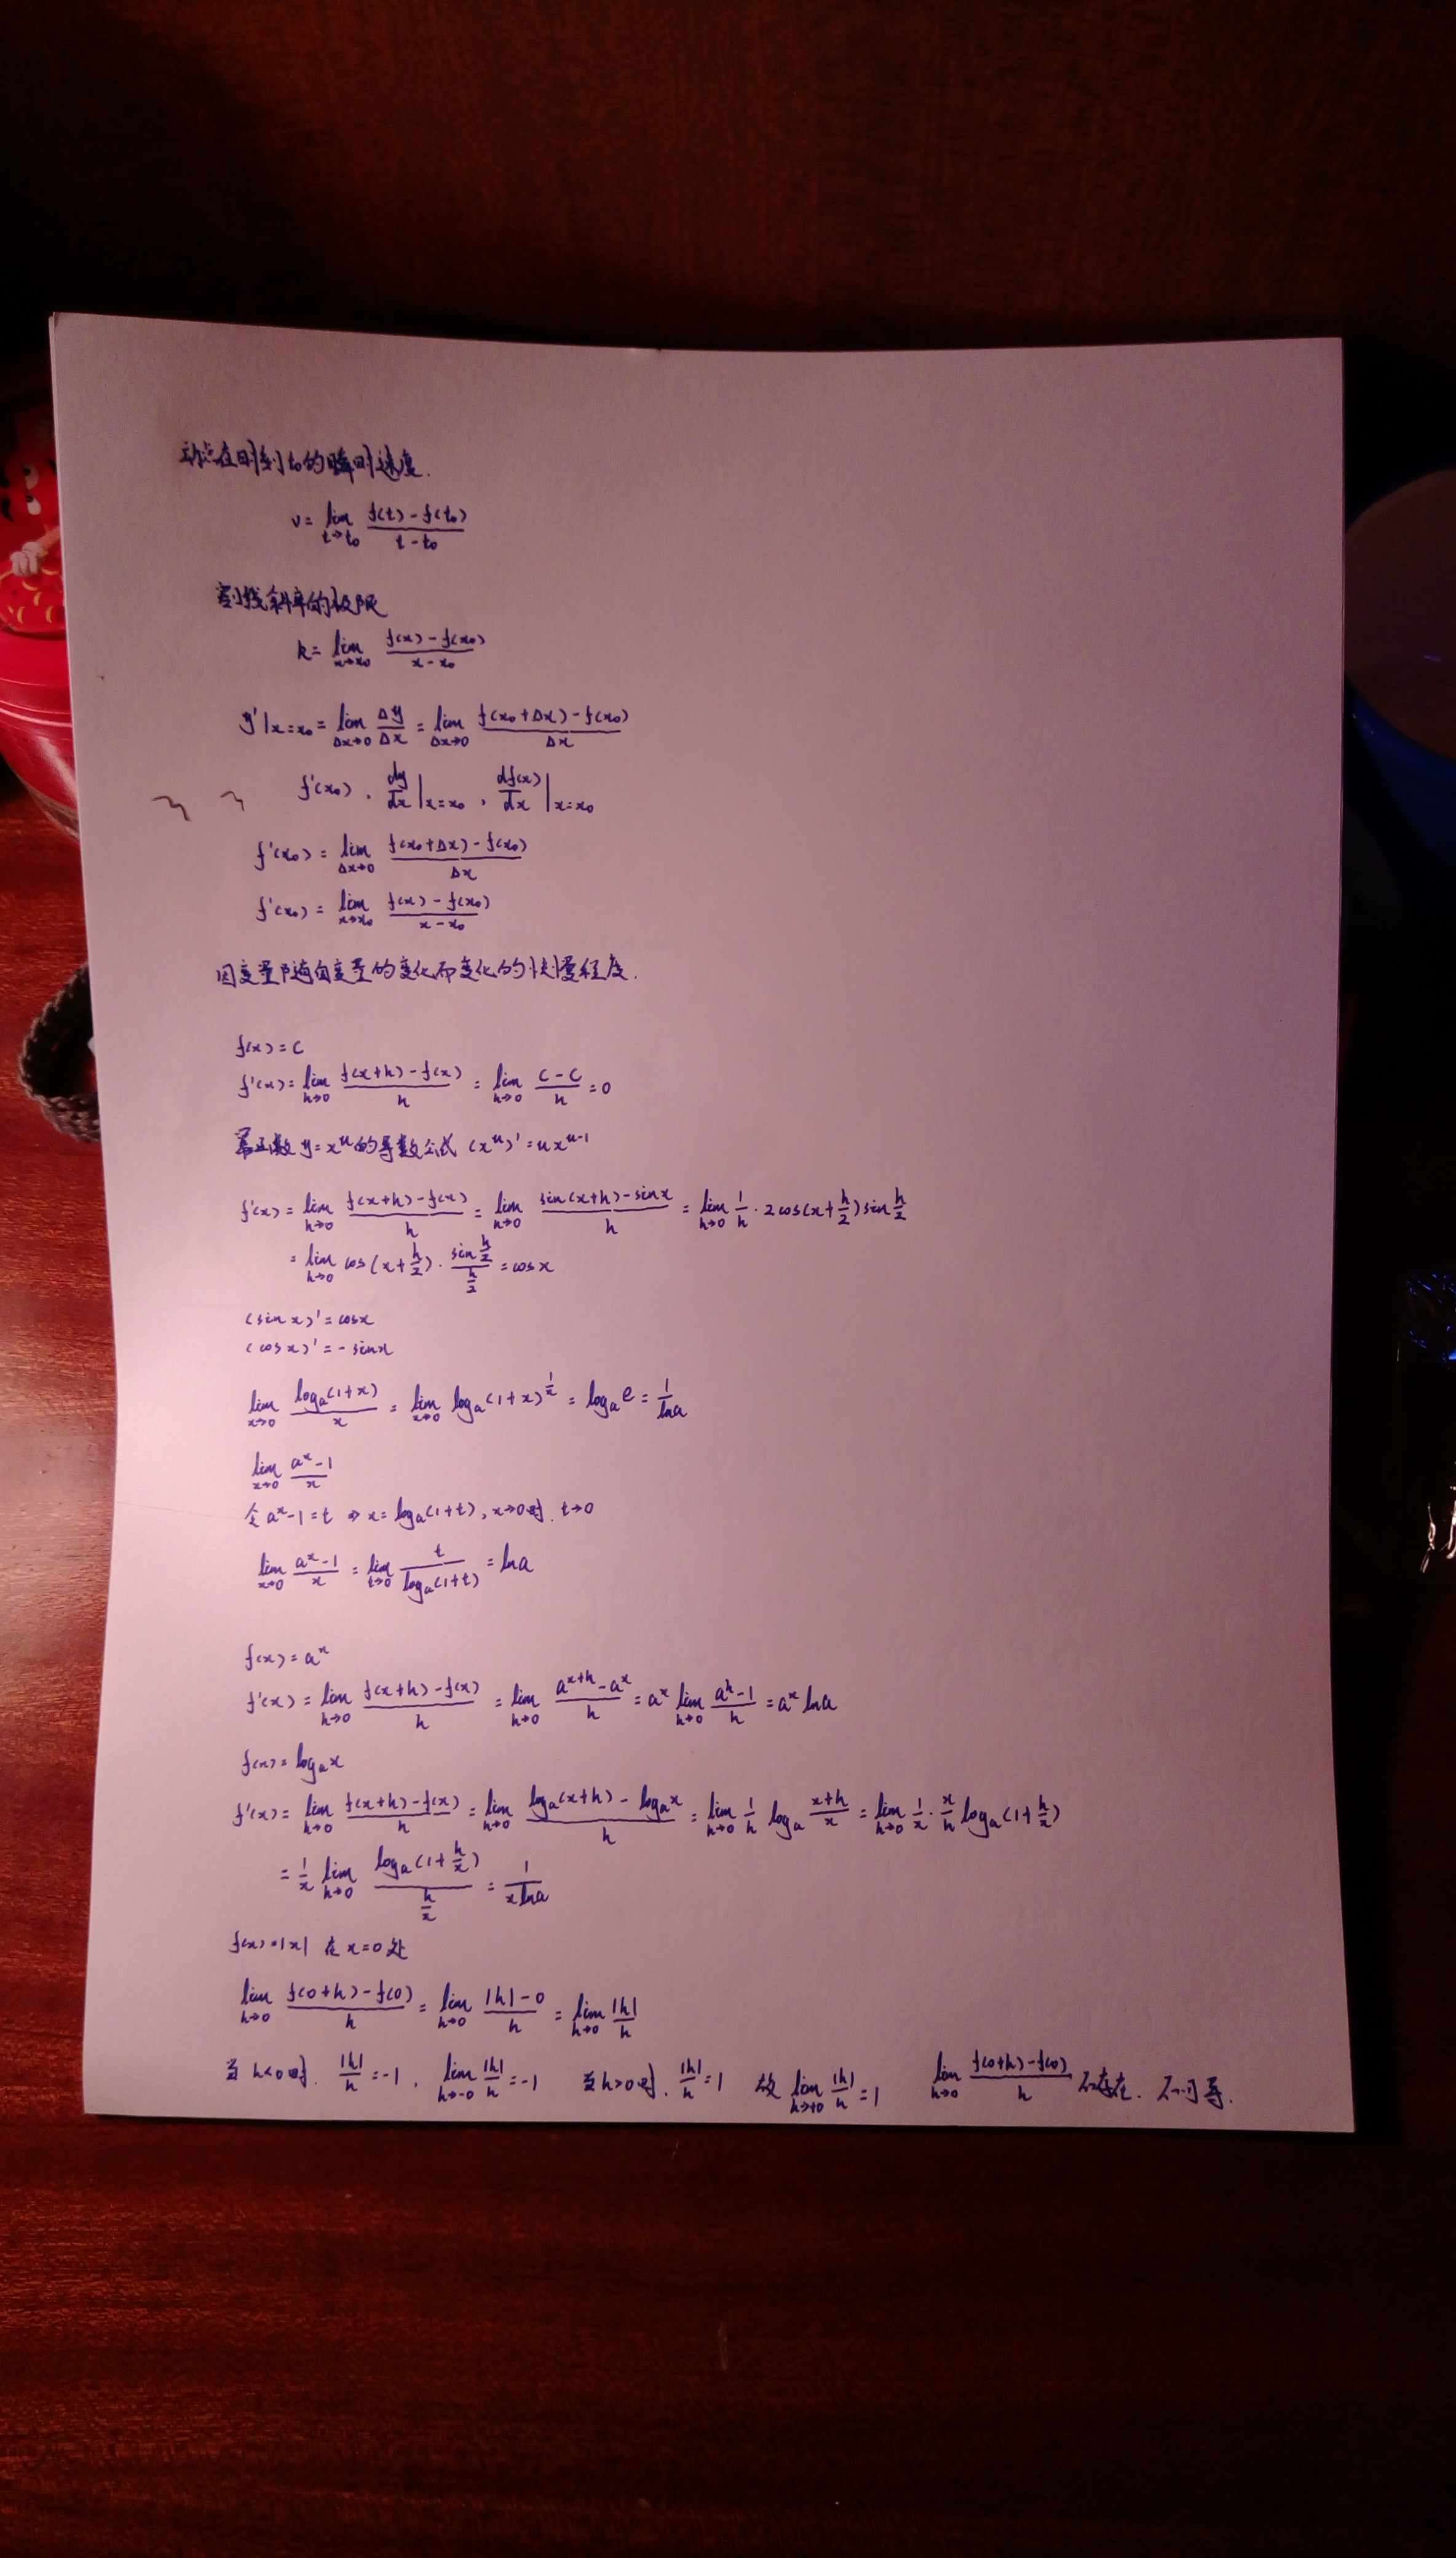 动点在时刻t₀的瞬时速度.
v = lim_{t→t₀} (f(t) - f(t₀))/(t - t₀)
割线斜率的极限
k = lim_{x→x₀} (f(x) - f(x₀))/(x - x₀)
y'|x=x₀ = lim_{Δx→0} Δy/Δx = lim_{Δx→0} (f(x₀+Δx) - f(x₀))/Δx
f'(x₀), dy/dx|x=x₀, df(x)/dx|x=x₀
f'(x₀) = lim_{Δx→0} (f(x₀+Δx) - f(x₀))/Δx
f'(x₀) = lim_{x→x₀} (f(x) - f(x₀))/(x - x₀)
因变量随自变量的变化而变化的快慢程度.
f(x) = C
f'(x) = lim_{h→0} (f(x+h) - f(x))/h = lim_{h→0} (C - C)/h = 0
幂函数 y = x^u 的导数公式 (x^u)' = ux^(u-1)
f'(x) = lim_{h→0} (f(x+h) - f(x))/h = lim_{h→0} (sin(x+h) - sinx)/h = lim_{h→0} 1/h · 2cos(x+h/2)sin h/2
= lim_{h→0} cos(x+h/2) · (sin h/2)/(h/2) = cosx
(sinx)' = cosx
(cosx)' = -sinx
lim_{x→0} logₐ(1+x)/x = lim_{x→0} logₐ(1+x)^(1/x) = logₐe = 1/lna
lim_{x→0} (a^x - 1)/x
令 a^x - 1 = t ⇒ x = logₐ(1+t), x→0时, t→0
lim_{x→0} (a^x - 1)/x = lim_{t→0} t/logₐ(1+t) = lna
f(x) = a^x
f'(x) = lim_{h→0} (f(x+h) - f(x))/h = lim_{h→0} (a^(x+h) - a^x)/h = a^x lim_{h→0} (a^h - 1)/h = a^x lna
f(x) = logₐx
f'(x) = lim_{h→0} (f(x+h) - f(x))/h = lim_{h→0} (logₐ(x+h) - logₐx)/h = lim_{h→0} 1/h logₐ (x+h)/x = lim_{h→0} 1/x · x/h logₐ(1+h/x)
= 1/x lim_{h→0} logₐ(1+h/x)/(h/x) = 1/(xlna)
f(x) = |x| 在 x=0 处
lim_{h→0} (f(0+h) - f(0))/h = lim_{h→0} (|h| - 0)/h = lim_{h→0} |h|/h
当 h<0 时, |h|/h = -1, lim_{h→-0} |h|/h = -1 当 h>0 时, |h|/h = 1 故 lim_{h→+0} |h|/h = 1 lim_{h→0} (f(0+h) - f(0))/h 不存在. 不可导.